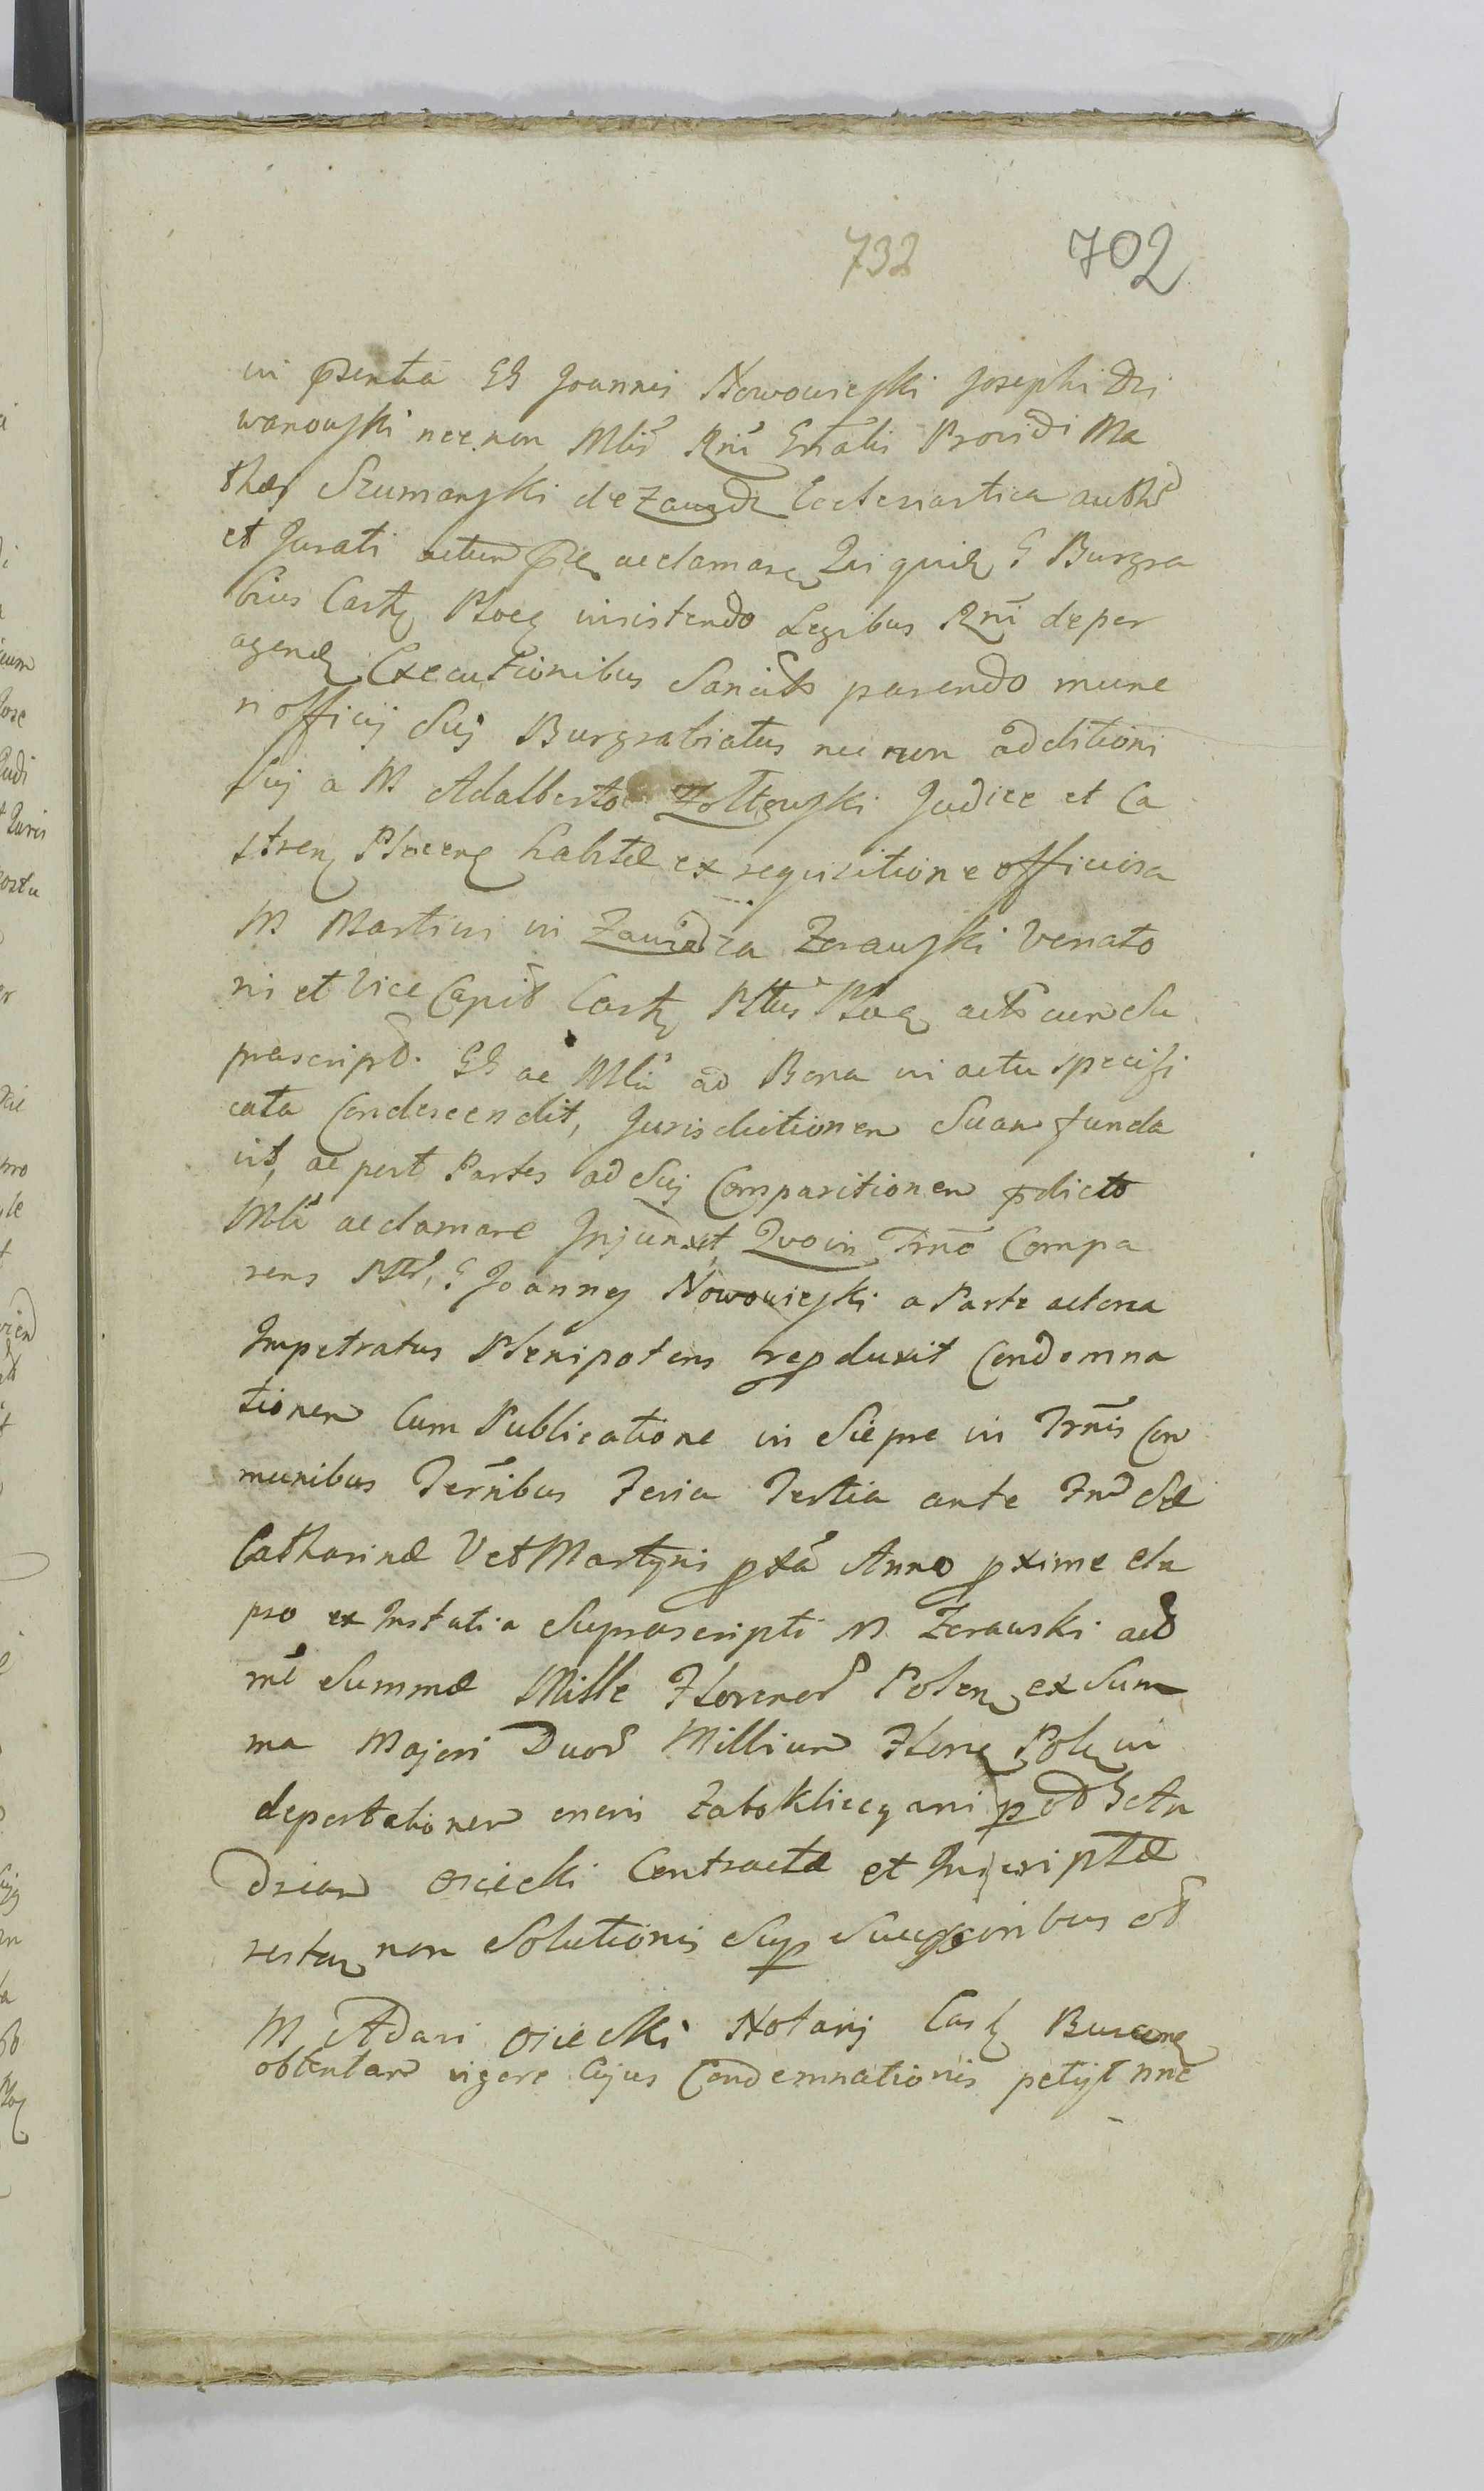 732 702
in psentia GG Joannis Nowowieyski Josephi Dzi
wanowski nec non Mlis Rni Gnalis Providi Ma
thei Szumanski de Zawidz Ecclesiastica authod
et Jurati actum pse aclamare Qui quid G Burgra
bius Cast Ploc insistendo Legibus Rni de per
agend Executionibus Sancits parendo mune
ri officij Suj Burgrabiatus nec non additioni
Suj a M Adalberto Zołtowski Judice et Ca
stren Plocen habitæ ex requisitione officiosa
M Martini in Zawidza Zerawski Venato
ris et Vice Capit Cast Pltus Ploc acts cum Su
prascript. GG ac Mli ad Bona in actu specifi
cata Condescendit, Jurisdictionem Suam funda
vit, ac post Partes ad Suj Comparitionem pdicto
Mli aclamare Injunxit, Quo in Trno Compa
rens G Joannes Nowowieyski a Parte actorea
Impetratus Plenipotens repduxit Condemna
tionem Cum Publicatione in Sierpc in Trnis Con
munibus Ternibus Feria Tertia ante Stæ
Catharinæ V et Martyris pxa Anno pxime ela
pso ex Instatia Suprascripti M. Zerawski
Summæ Mille Florenor Polon ex Sum
ma Majori Duor Millium Flore Pol in
deportationem oneris
Osiecki Contractæ et Inscriptæ
restan non Solutionis Sup Successoribus
M Adami Osiecki Notarij Cast
obtentam vigore Cujus Condemnationis petijt